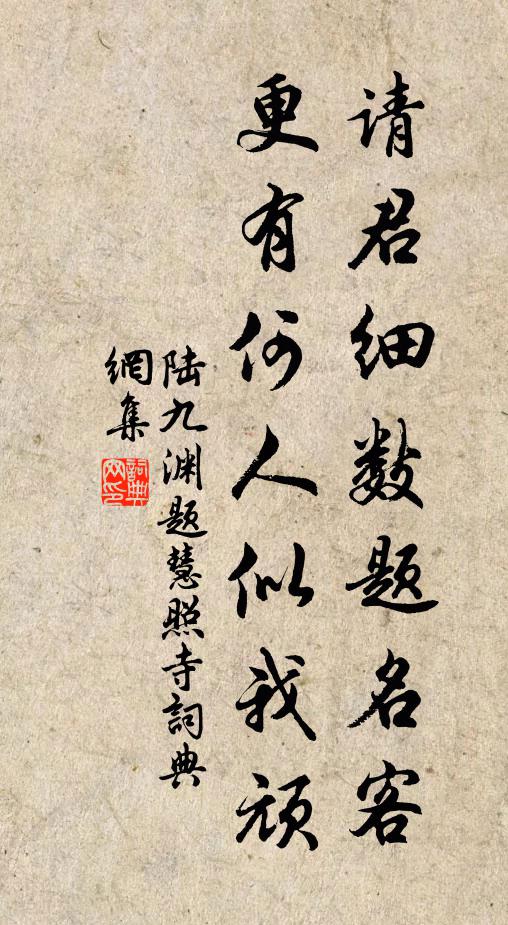 请君细数题名客
更有何人似我顽
陆九渊题慧照寺詞典
網集
詞典
网印